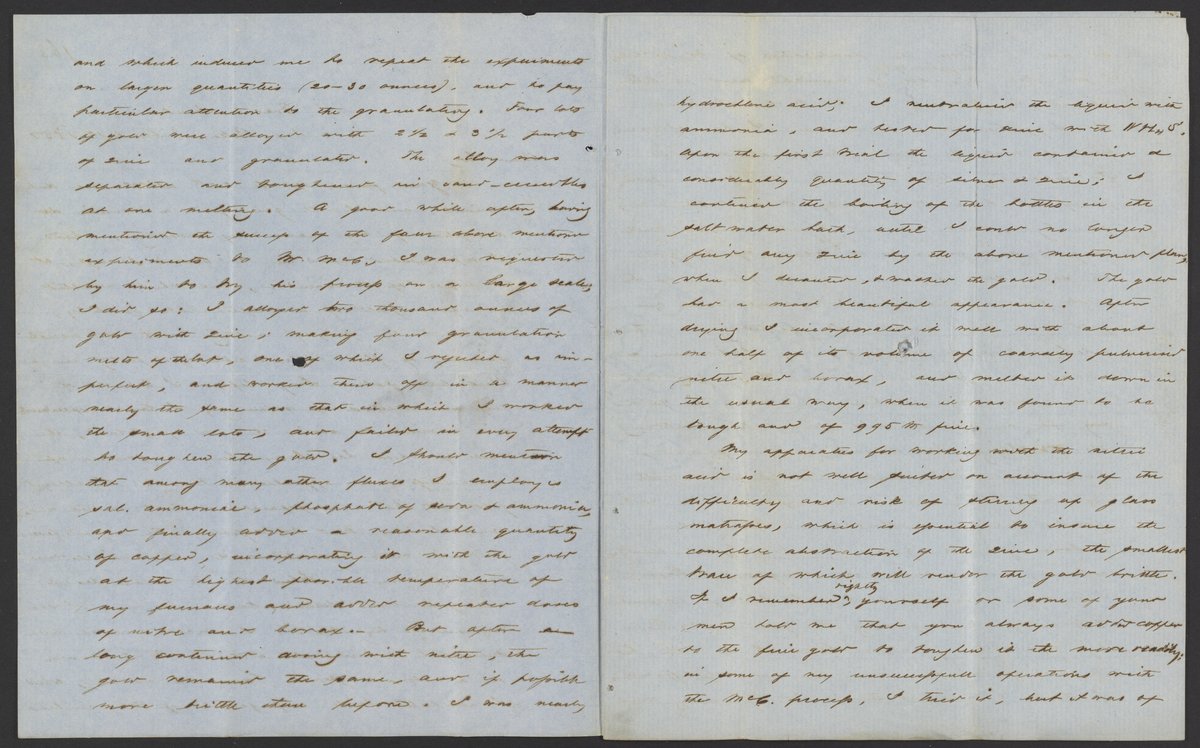 and which induced me to repeat the experiments
on larger quantities (20-30 ounces), and to pay
particular attention to the granulating. Four lots
of gold were alloyed with 2½ & 3½ parts
of Zinc and granulated. The alloy was
separated and toughened in sand-crucibles
at one melting. A good while after, having
mentioned the success of the four above mentioned
experiments to Mr McC, I was requested
by him to try his process on a large scale,
I did so: I alloyed two thousand ounces of
gold with Zinc, making four granulation
melts of the lot, one of which I rejected as im-
perfect, and worked them off in a manner
nearly the same as that in which I worked
the small lots, and failed in every attempt
to toughen the gold. I should mention
that among many other fluxes I employed
sal. ammoniac, phosphate of soda & ammonia,
and finally added a reasonable quantity
of copper, incorporately it with the gold
at the highest possible temperature of
my furnaces and added repeated doses
of nitre and borax.- But after a
long continued with nitre, the
gold remained the same, and if possible
more brittle than before. I was nearly
hydrochloric acid; I neutralized the liquid with
ammonia, and tested for zinc with
Upon the first trial the liquid contained a
considerably quantity of silver & zinc; I
continued the boiling of the bottles in the
salt water bath, until I could no longer
find any Zinc by the above mentioned plan,
when I decanted, & washed the gold. The gold
had a most beautiful appearance. After
drying I incorporated it well with about
one half of its volume of coarsely pulverised
nitre and borax, and melted it down in
the usual way, when it was found to be
tough and of 995 fine.
My apparatus for working with the nitric
acid is not well suited on account of the
difficulty and risk of stirring up glass
matrasses, which is essential to insure the
complete abstraction of the Zinc, the smallest
trace of which will render the gold brittle.
If I remember rightly yourself or some of your
men told me that you always added copper
to the fine gold to toughen it the more readily;
in some of my unsuccessfull operations with
the McC. process, I tried it, but it was of